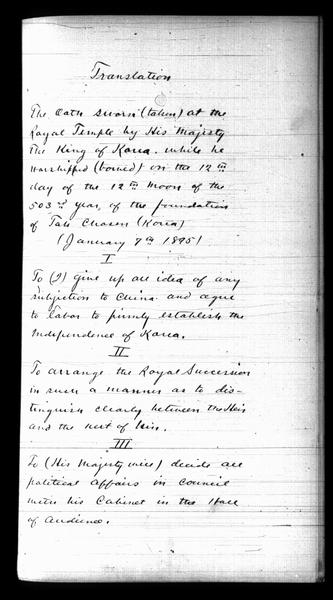 Translation
The Oath sworn (taken) at the
Royal Temple by His Majesty
the King of Korea. while he
worshipped (bowed) on the 12th
day of the 12th Moon of the
503rd year, of the foundation
of Tah Chosen (Korea)
(January 7th 1895)
I
To (I) give up all idea of any
subjection to China. and agree
to labor to firmly establish the
Independence of Korea.
II
To arrange the Royal Succession
in such a manner as to dis-
tinguish clearly between the Heir
and the next of kin.
III
To (His Majesty will) decide all
political affairs in council
with his Cabinet in the Hall
of Audience.